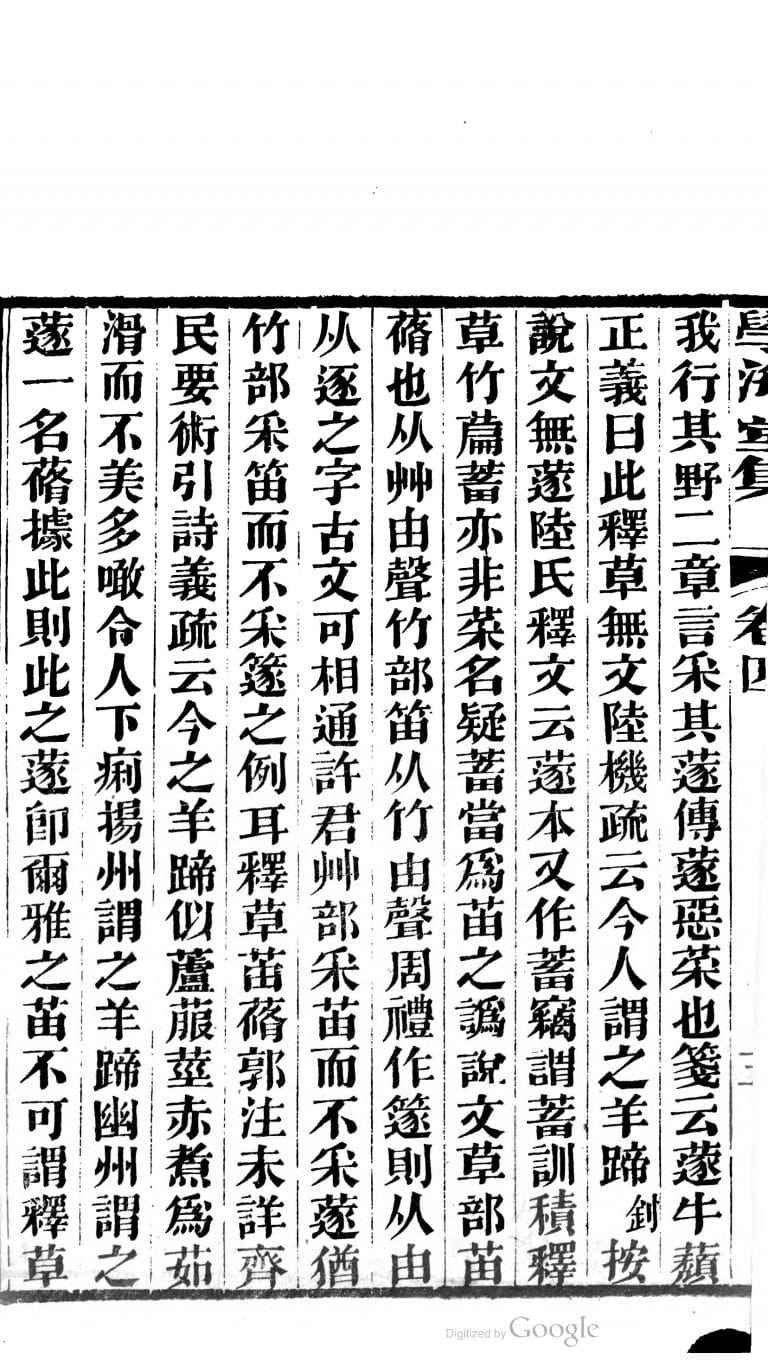 學海堂集 卷四
我行其野二章言采其蓫傳蓫惡菜也箋云蓫牛蘈
正義曰此釋草無文陸機疏云今人謂之羊蹄釗按
說文無蓫陸氏釋文云蓫本又作蓄竊謂蓄訓積釋
草竹萹蓄亦非菜名疑蓄當爲苗之譌說文草部苗
蓨也从艸由聲竹部笛从竹由聲周禮作篴則从由
从逐之字古文可相通許君艸部采苗而不采蓫猶
竹部采笛而不采篴之例耳釋草苖蓨郭注未詳齊
民要術引詩義疏云今之羊蹄似蘆菔莖赤煮爲茹
滑而不美多噉令人下痢揚州謂之羊蹄幽州謂之
蓫一名蓨據此則此之蓫卽爾雅之苗不可謂釋草
Digitized by Google